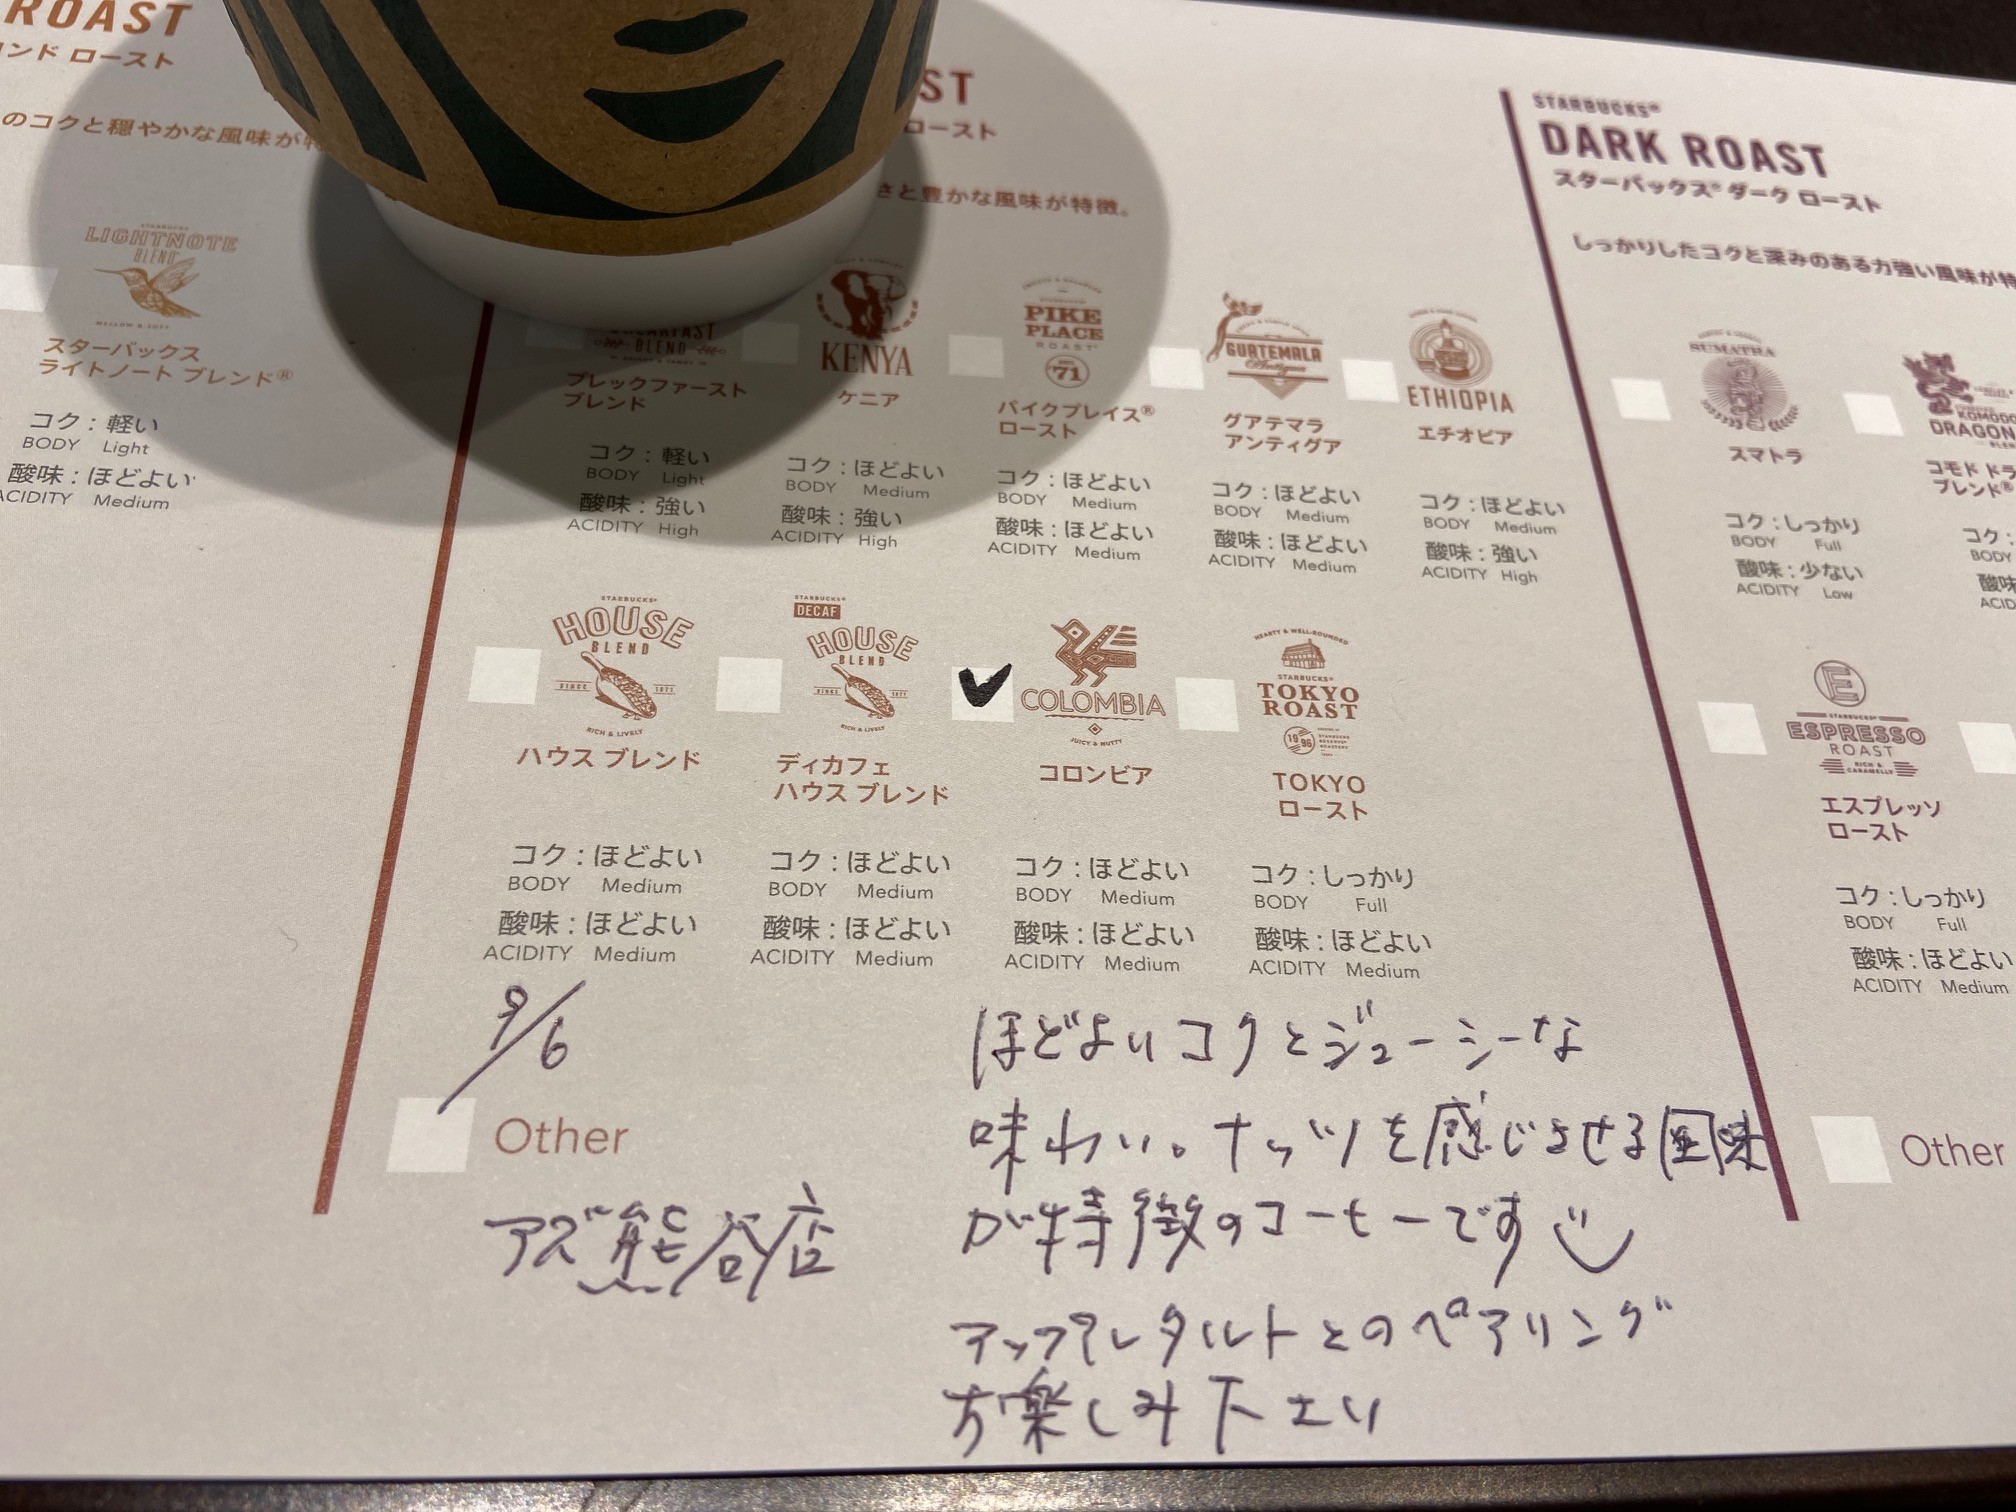 ROAST
ンド ロースト
のコクと穏やかな風味が特
STARBUCKS
LIGHTNOTE
BLEND
MELLOW & SOFT
スターバックス
ライトノート ブレンド®
コク : 軽い
BODY Light
酸味 : ほどよい
ACIDITY Medium
ST
ロースト
さと豊かな風味が特徴。
BREAKFAST
BLEND
ブレックファースト
ブレンド
コク : 軽い
BODY Light
酸味 : 強い
ACIDITY High
KENYA
ケニア
コク : ほどよい
BODY Medium
酸味 : 強い
ACIDITY High
PIKE
PLACE
ROAST
71
パイクプレイス®
ロースト
コク : ほどよい
BODY Medium
酸味 : ほどよい
ACIDITY Medium
GUATEMALA
Antigua
グアテマラ
アンティグア
コク : ほどよい
BODY Medium
酸味 : ほどよい
ACIDITY Medium
ETHIOPIA
エチオピア
コク : ほどよい
BODY Medium
酸味 : 強い
ACIDITY High
STARBUCKS®
HOUSE
BLEND
SINCE 1971
RICH & LIVELY
ハウス ブレンド
コク : ほどよい
BODY Medium
酸味 : ほどよい
ACIDITY Medium
STARBUCKS®
DECAF
HOUSE
BLEND
SINCE 1971
RICH & LIVELY
ディカフェ
ハウス ブレンド
コク : ほどよい
BODY Medium
酸味 : ほどよい
ACIDITY Medium
COLOMBIA
JUICY & NUTTY
コロンビア
コク : ほどよい
BODY Medium
酸味 : ほどよい
ACIDITY Medium
HEARTY & WELL-ROUNDED
STARBUCKS®
TOKYO
ROAST
1996
TOKYO
ロースト
コク : しっかり
BODY Full
酸味 : ほどよい
ACIDITY Medium
9/6
Other
アズ熊谷店
ほどよいコクとジューシーな
味わい。ナッツを感じさせる風味
が特徴のコーヒーです
アップルタルトとのペアリング
お楽しみ下さい
STARBUCKS®
DARK ROAST
スターバックス® ダーク ロースト
しっかりしたコクと深みのある力強い風味が特
SUMATRA
スマトラ
コク : しっかり
BODY Full
酸味 : 少ない
ACIDITY Low
KOMODO
DRAGON
コモド ドラ
ブレンド®
コク :
BODY
酸味
ACID
E
STARBUCKS®
ESPRESSO
ROAST
RICH &
CARAMELLY
エスプレッソ
ロースト
コク : しっかり
BODY Full
酸味 : ほどよい
ACIDITY Medium
Other